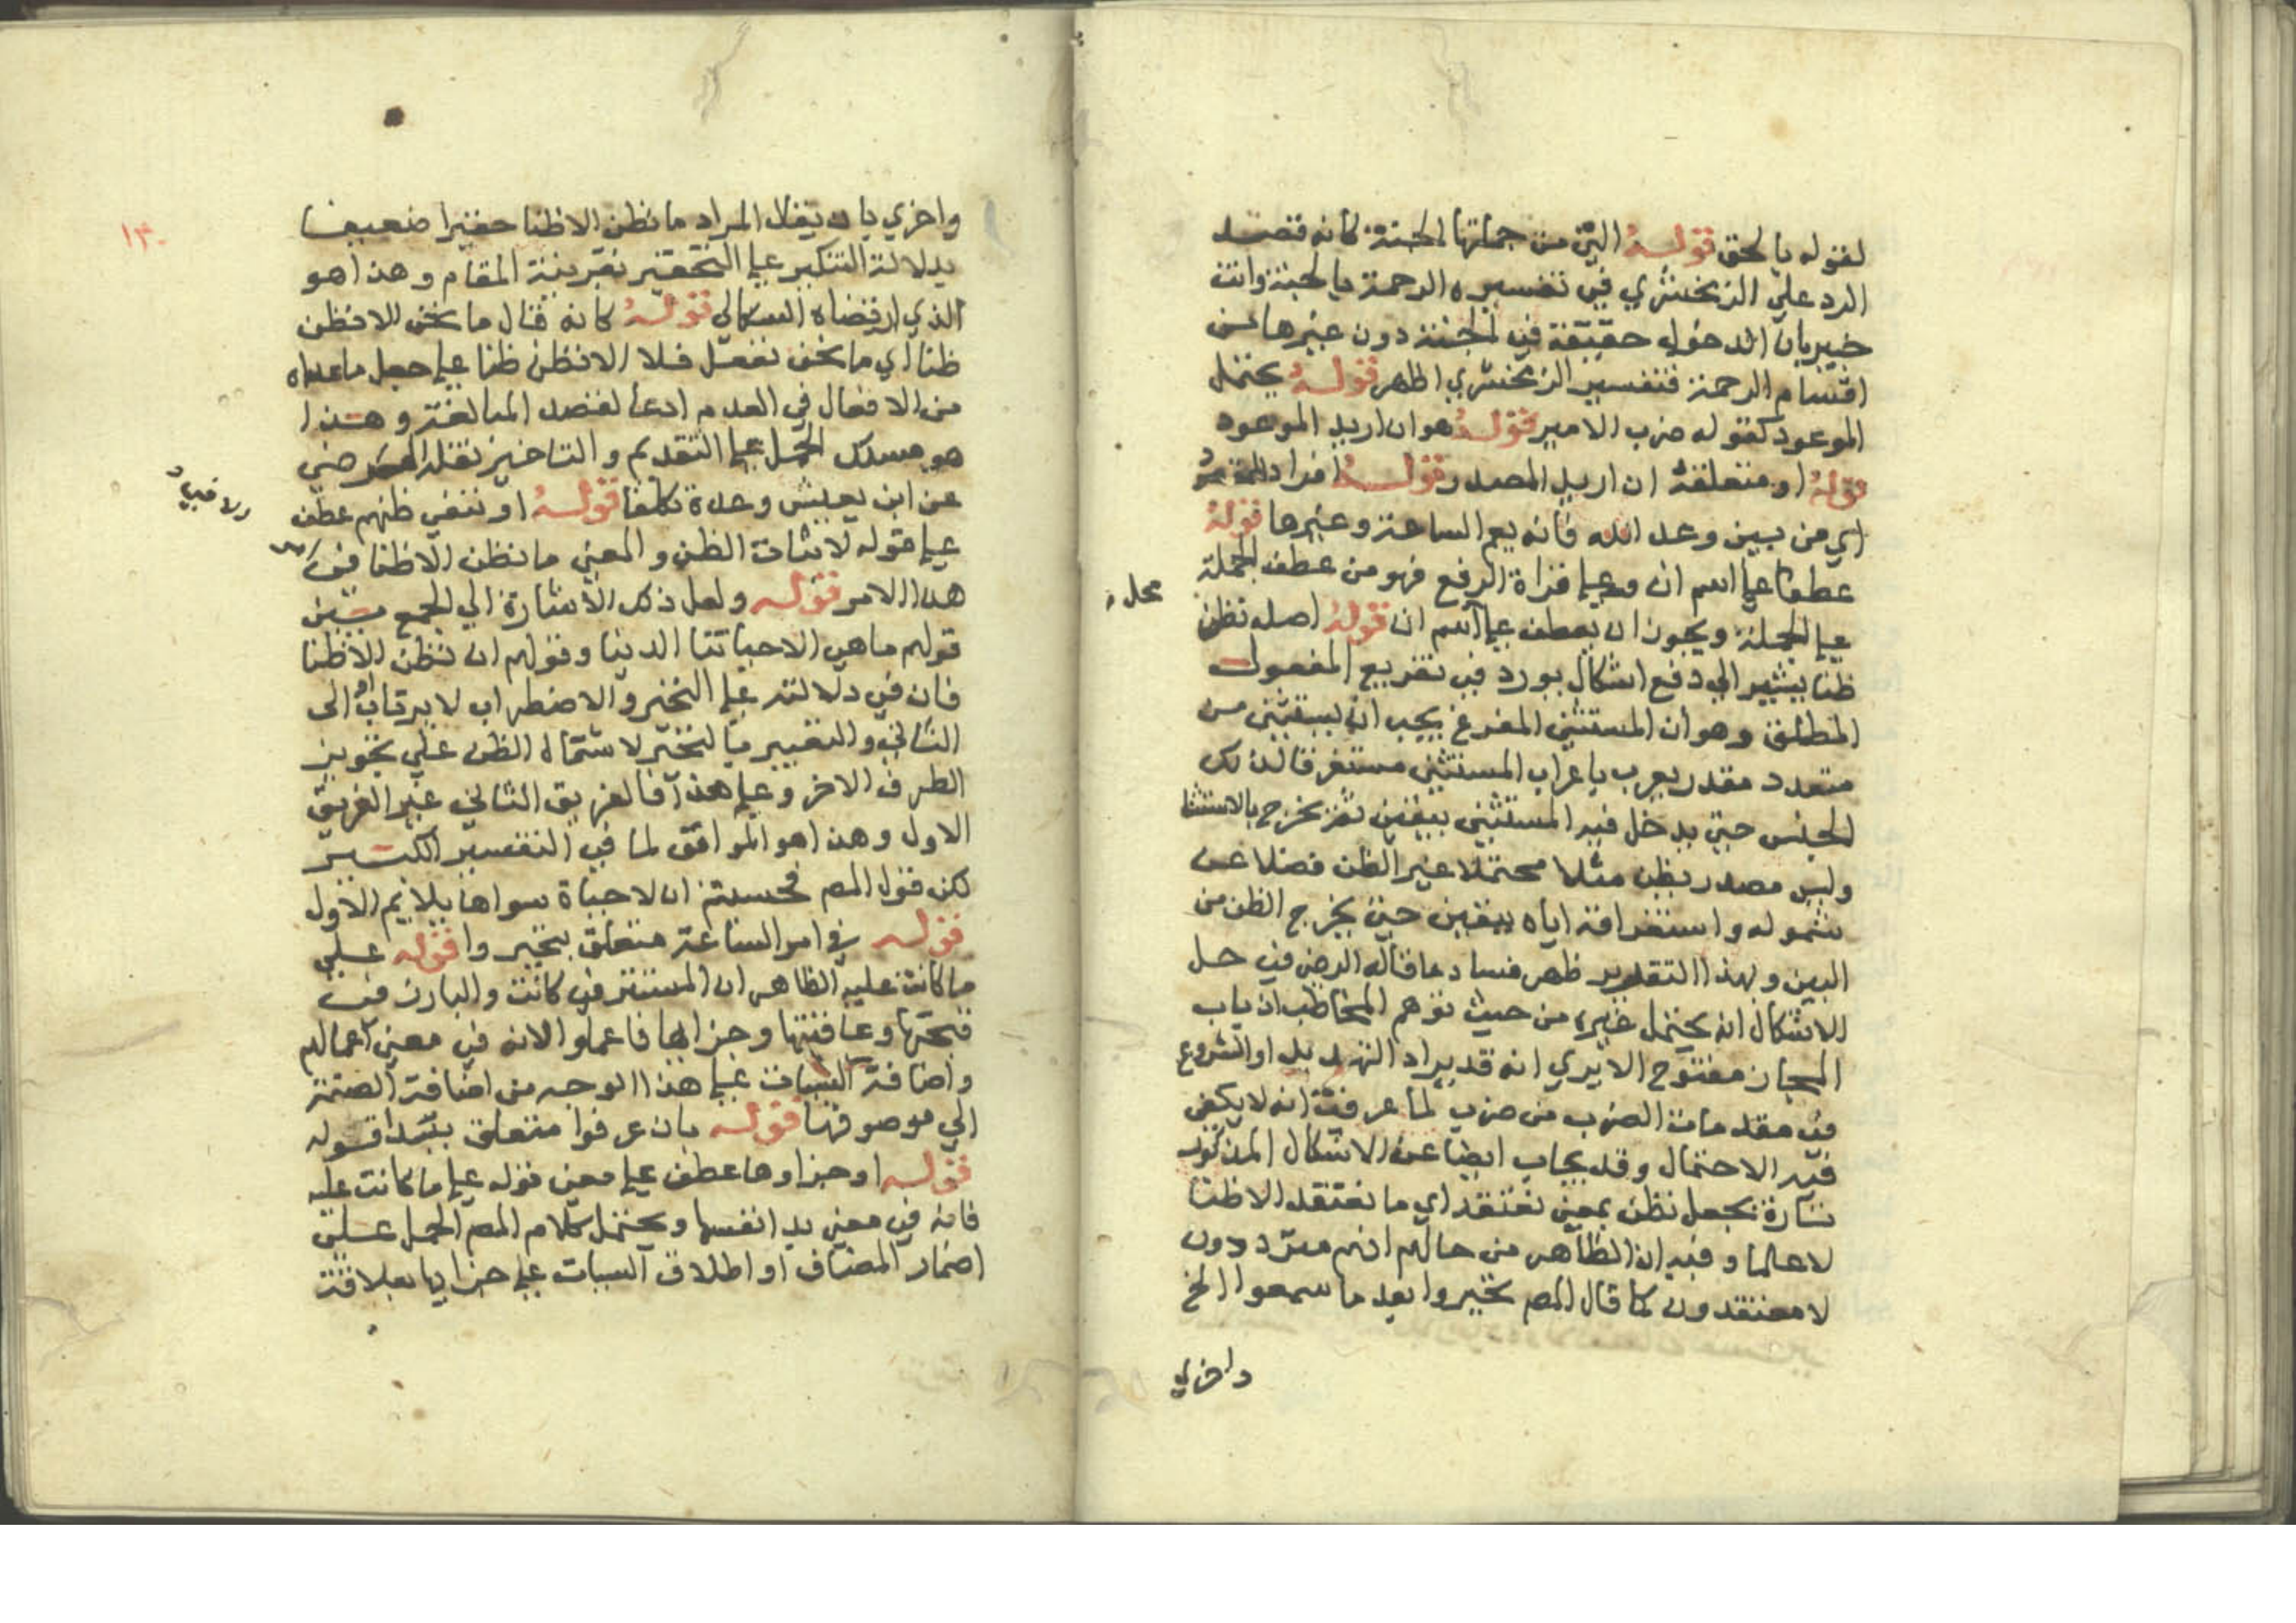 لقوله بالحق قوله التي من جملتها الجنة كانه قصد
الرد علي الزمخشري في تفسيره الرحمة بالجنة وانت
خبير بان الدخول حقيقة في الجنة دون غيرها من
اقسام الرحمة فتفسير الزمخشري اظهر قوله يحتمل
الموعود كقوله ضرب الامير قوله هو ان اريد الموعود
قوله او متعلقه ان اريد المصدر قوله افراد للمقصود
اي من بين وعد الله فانه يعم الساعة وغيرها قوله
عطفا علي اسم ان وعلي قراة الرفع فهو من عطف الجملة
علي الجملة ويجوز ان يعطف علي اسم ان قوله اصله نظن
محل
ظنا يشير الي دفع اشكال يورد في تفريع المفعول
المطلق وهو ان المستثني المفرغ يجب ان يستثني من
متعدد مقدر يعرب باعراب المستثني مستغرقا لذلك
الجنس حتي يدخل فيه المستثني بيقين ثم يخرج بالاستثنا
وليس مصدر نظن مثلا محتملا غير الظن فضلا عن
شموله واستغراقه اياه بيقين حتي يخرج الظن من
البين وبهذا التقدير ظهر فساد ما قاله الرضي في حل
الاشكال انه يحتمل غيره من حيث توهم المخاطب ان باب
المجاز مفتوح الا يري انه قد يراد التهديد او الشروع
في مقدمات الضرب من ضرب لما عرفت انه لا يكفي
فيه الاحتمال وقد يجاب ايضا عن الاشكال المذكور
تارة بجعل نظن بمعني نعتقد اي ما نعتقد الا ظنا
لا علما وفيه ان الظاهر من حالهم انهم مترددون
لا معتقدون كما قال المص تحيروا بعد ما سمعوا الخ
واخري
١٣٠
واخري بان يقال المراد ما نظن الا ظنا حقيرا ضعيفا
بدلالة التنكير علي التحقير بقرينة المقام وهذا هو
الذي ارتضاه السكاكي قوله كانه قال ما نحن الا نظن
ظنا اي ما نحن نفعل فعلا الا نظن ظنا علي جعل ما عداه
من الافعال في العدم ادعا لقصد المبالغة وهذا
هو مسلك الحمل علي التقديم والتاخير نقله الرضي
عن ابن يعيش وعده تكلفا قوله او لنفي ظنهم عطف
علي قوله لاثبات الظن والمعني ما نظن الا ظنا في
هذا الامر قوله ولعل ذكر الاشارة الي الجمع بين
قولهم ما هي الا حياتنا الدنيا وقولهم ان نظن الا ظنا
فان في دلالته علي التحير والاضطراب لا يرتاب الي
الثاني والتعبير بالتحير لاشتمال الظن علي تجويز
الطرف الاخر وعلي هذا فالفريق الثاني غير الفريق
الاول وهذا هو الموافق لما في التفسير الكبير
لكن قول المص فحسبتم ان لا حياة سواها يلايم الاول
قوله في امر الساعة متعلق بتحير وا قوله علي
ما كانت عليه الظاهر ان المستتر في كانت والبارز في
قبحها وعاقبتها وجزايها فاعملوا لانه في معني اعمالهم
واضافة السيات علي هذا الوجه من اضافة الصفة
الي موصوفها قوله بان عرفوا متعلق ببدا قوله
قوله او جزاوها عطف علي معني قوله علي ما كانت عليه
فانه في معني بدا نفسها ويحتمل كلام المص الحمل علي
اضمار المضاف او اطلاق السيات علي جزايها بعلاقة